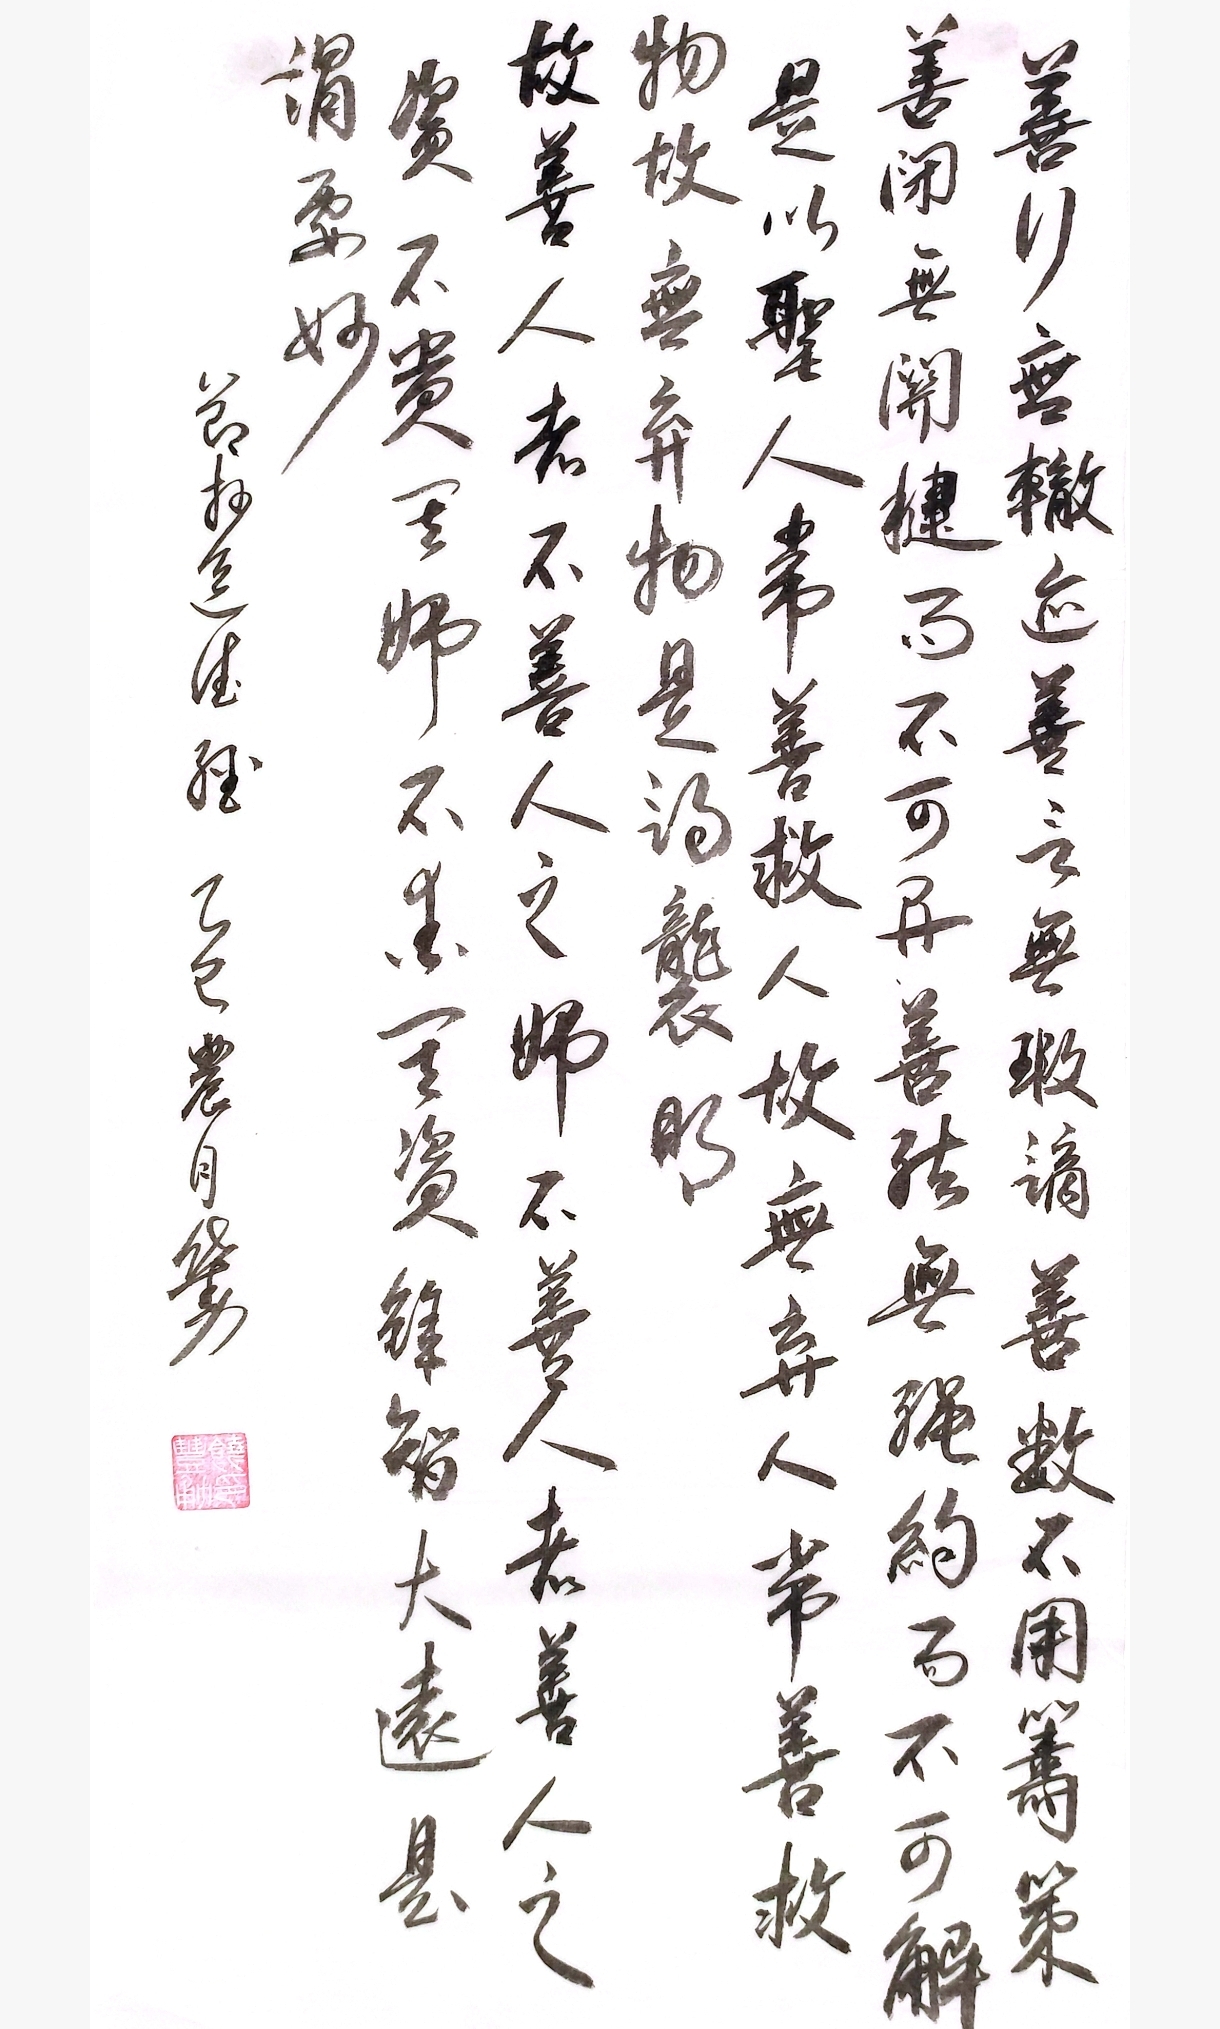 善行無轍迹善言無瑕謫善数不用籌策
善閉無關楗而不可開善结無繩約而不可解
是以聖人常善救人故無弃人常善救
物故無弃物是謂襲明
故善人者不善人之師不善人者善人之
資不貴其師不愛其資雖智大遠是
謂要妙
節抄道德經 乙巳農月